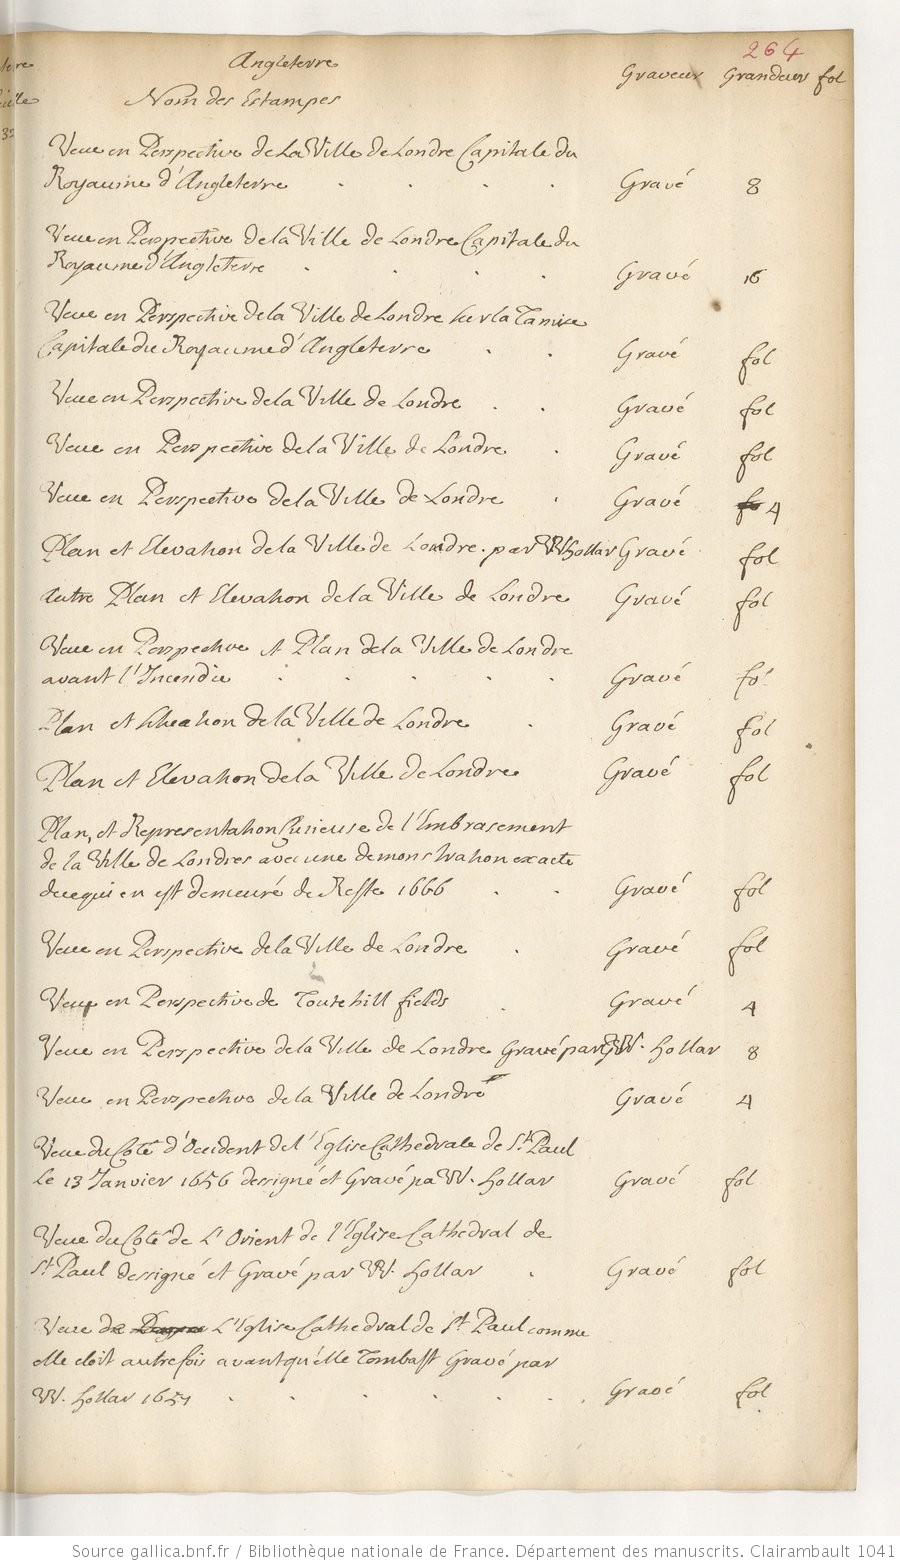 264
Angleterre
Graveur Grandeur fol
Nom des Estampes
Veue en Perspective de La Ville de Londre Capitale du
Royaume d'Angleterre . . . . Gravé 8
Veue en Perspective de la Ville de Londre Capitale du
Royaume d'Angleterre . . . . Gravé 16
Veue en Perspective de la Ville de Londre sur la Tamise
Capitale du Royaume d'Angleterre . . Gravé fol
Veue en Perspective de la Ville de Londre . . Gravé fol
Veue en Perspective de la Ville de Londre . Gravé fol
Veue en Perspective de la Ville de Londre . Gravé 4
Plan et Elevation de la Ville de Londre. par W Hollar Gravé fol
Autre Plan et Elevation de la Ville de Londre Gravé fol
Veue en Perspective et Plan de la Ville de Londre
avant l'Incendie . . . . . Gravé fol
Plan et Elevation de la Ville de Londre . Gravé fol
Plan et Elevation de la Ville de Londre Gravé fol
Plan, et Representation Curieuse de l'Embrasement
de la Ville de Londres avec une demonstration exacte
de ce qui en est demeuré de Reste 1666 . . Gravé fol
Veue en Perspective de la Ville de Londre . Gravé fol
Veue en Perspective de Toutehill fields . Gravé 4
Veue en Perspective de la Ville de Londre Gravé par W. Hollar 8
Veue en Perspective de la Ville de Londre Gravé 4
Veue du Coté d'Occident de l'Eglise Cathedrale de St. Paul
Le 13 Janvier 1656 dessigné et Gravé pa W. Hollar Gravé fol
Veue du Coté de L'Orient de l'Eglise Cathedral de
St. Paul dessigné et Gravé par W. Hollar . Gravé fol
Veue de L'Eglise Cathedral de St. Paul comme
elle etoit autrefois avant qu'elle Tombast Gravé par
W. Hollar 1657 . . . . . . Gravé fol
Source gallica.bnf.fr / Bibliothèque nationale de France. Département des manuscrits. Clairambault 1041